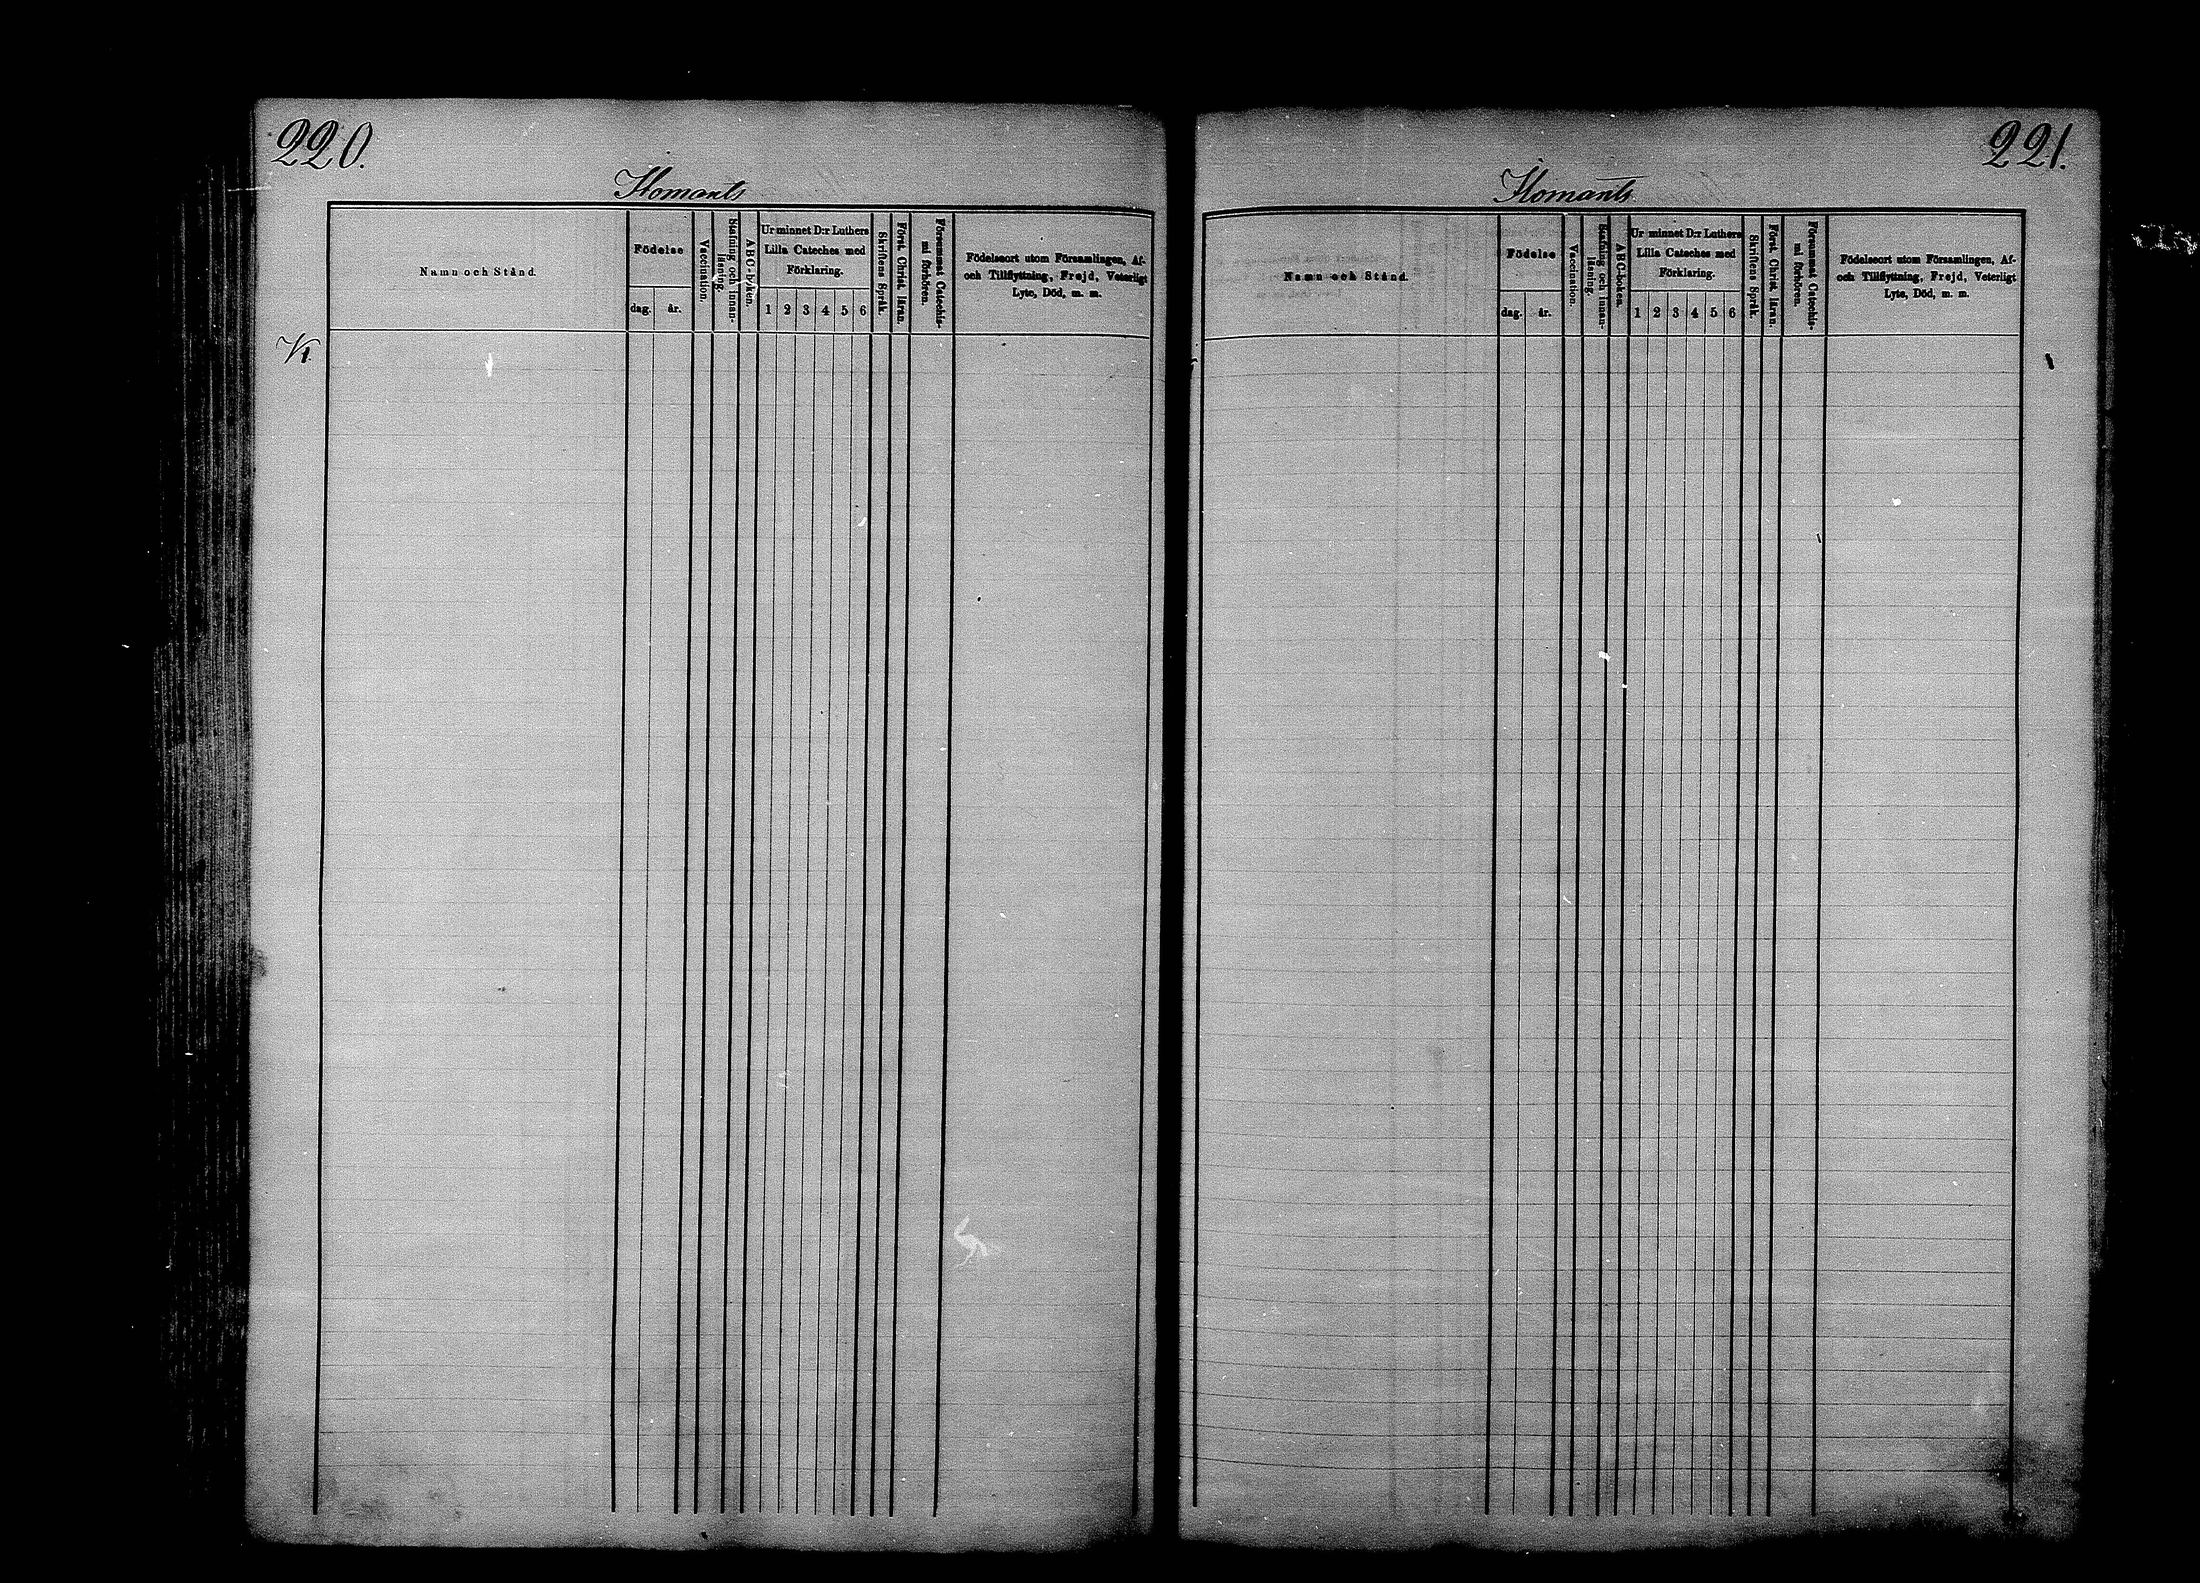 220.
Homants
Namn och Stånd.
Födelse
dag.
år.
Vaccination.
Stafning och innan-
läsning.
ABC-boken.
Ur minnet D:r Luthers
Lilla Cateches med
Förklaring.
1 2 3 4 5 6
Skriftens Språk.
Först. Christ. läran.
Försummat Catechis-
mi förhören.
Födelseort utom Församlingen, Af-
och Tillflyttning, Frejd, Veterligt
Lyte, Död, m. m.
221.
Homants
Namn och Stånd.
Födelse
dag.
år.
Vaccination.
Stafning och innan-
läsning.
ABC-boken.
Ur minnet D:r Luthers
Lilla Cateches med
Förklaring.
1 2 3 4 5 6
Skriftens Språk.
Först. Christ. läran.
Försummat Catechis-
mi förhören.
Födelseort utom Församlingen, Af-
och Tillflyttning, Frejd, Veterligt
Lyte, Död, m. m.